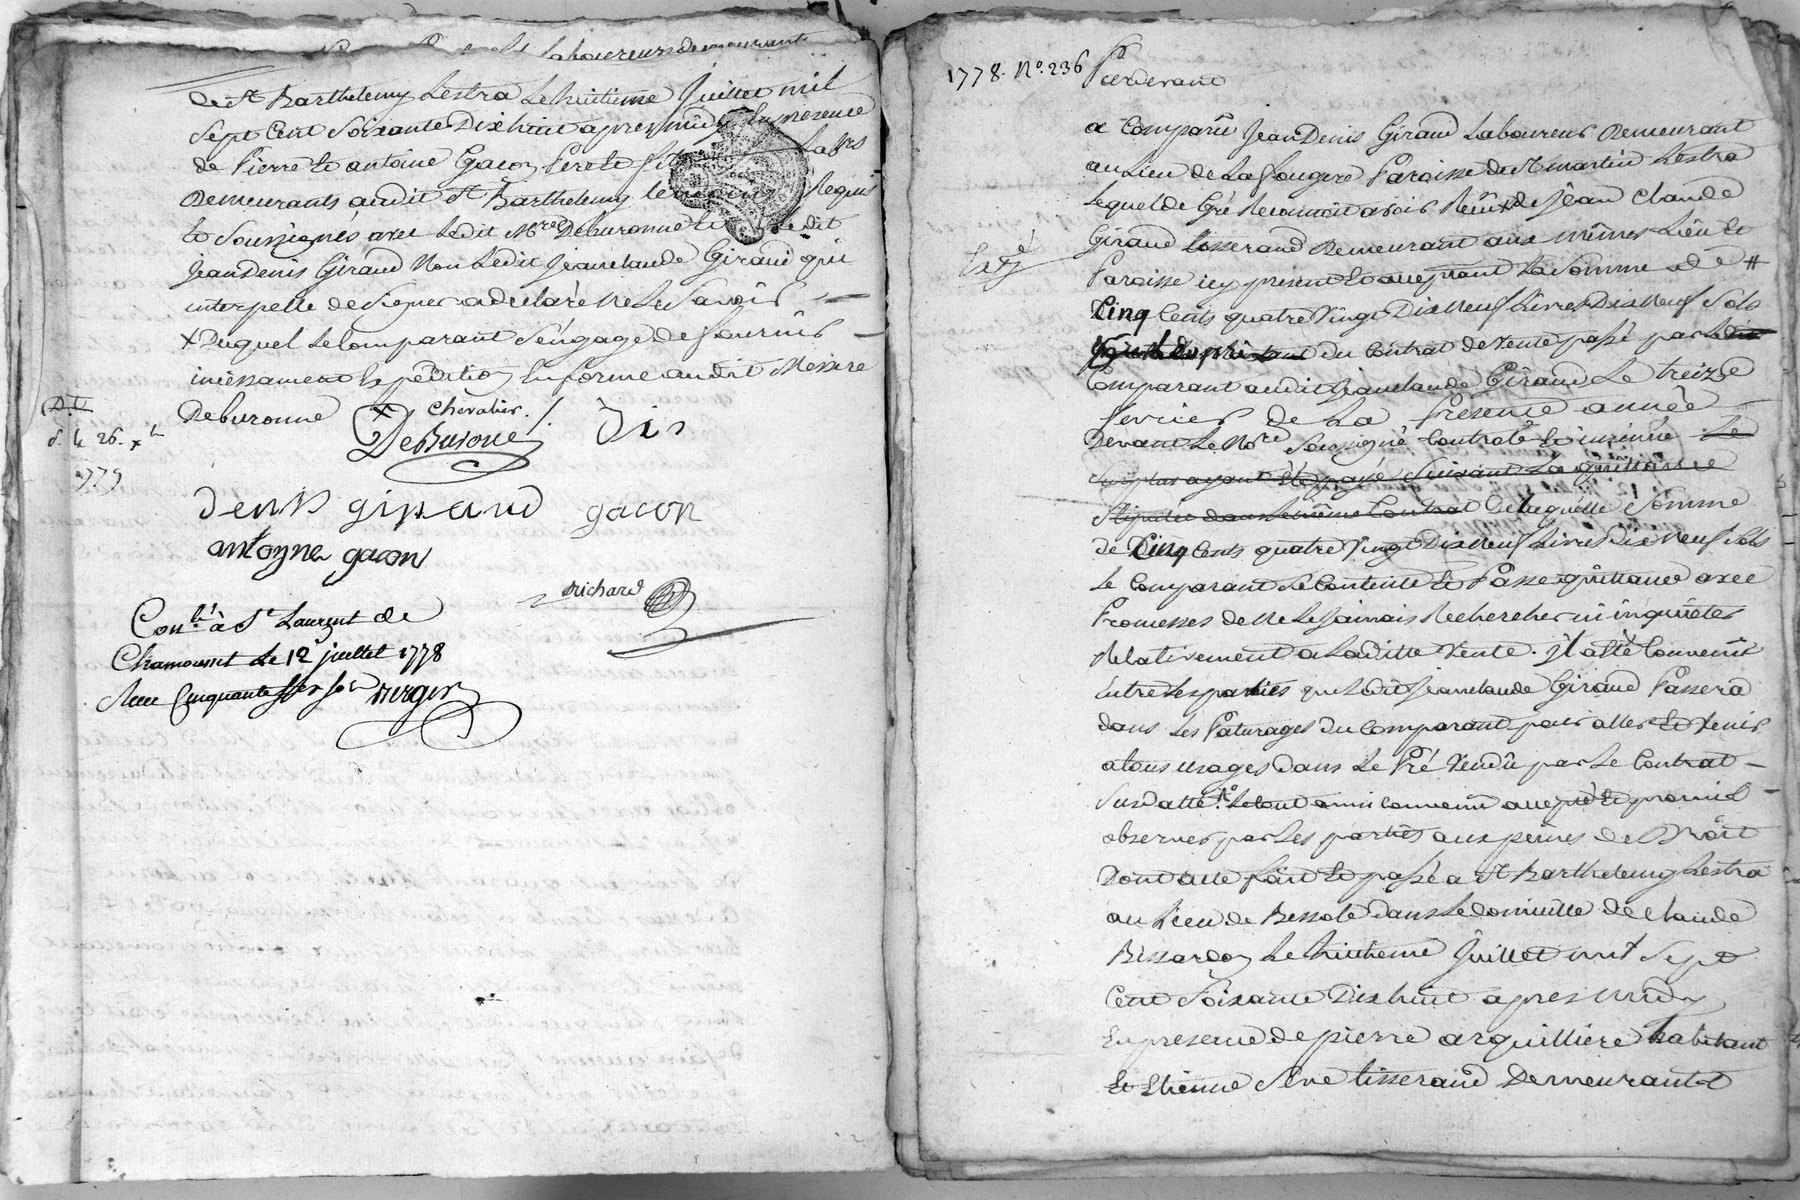 laboureurs demeurant
de St Barthelemy Lestra Le huitieme Juillet mil
Sept Cent Soixante Dix huit apres midy En presence
de Pierre Et antoine Gacon Pere Et fils Lab.rs
Demeurants audit St Barthelemy temoins Requis
Et Soussignés avec Ledit M.re Deburonne Et Ledit
Jean Denis Giraud Non Ledit Jean claude Giraud qui
interpellé de Signer a declaré ne Le Savoir
x Duquel Le Comparant S'éngage de fournir
incessament Expédition En forme audit Messire
Deburonne
Chevalier
DeBurone
D. le 26. x
1779
denis giraud gacon
antoyne gacon
richard
Con.lé à St Laurent de
Chamousset Le 12 juillet 1778
Reçu Cinquante Six Sols
1778. No. 236
Pardevant
a Comparû Jean Denis Giraud Laboureur Demeurant
au Lieu de La fougere Paroisse de St martin Lestra
Lequel de Gré Reconnoit avoir Reçû de Jean Claude
Giraud tisserand Demeurant aux mêmes Lieu Et
Paroisse icy present Et acceptant La Somme de #
Cinq Cents quatre Vingt Dix Neuf Livres Dix Neuf Sols
du Contrat de Vente passé par Le dit
Comparant audit Jean claude Giraud Le treize
fevrier de La Presente année
Devant Le No.re Soussigné Controlé Et insinué Le
Surplus ayant Eté payé Suivant La quittance
Stipulée dans Le même Contrat De laquelle Somme
de Cinq Cents quatre Vingt Dix Neuf Livres Dix Neuf Sols
Le Comparant Se Contente Et Passe quittance avec
Promesses de Ne Le Jamais Rechercher ni inquiéter
Relativement a La ditte Vente. Il a été Convenu
Entre Les parties que Ledit Jean claude Giraud Passera
dans Les Paturages du Comparant pour aller Et Venir
a tous usages dans Le Pré Vendû par Le Contrat
Susdatté. Le tout ainsi Convenu accepté Et promis
observer par Les parties aux peines de Droit
Dont acte fait Et passé a St Barthelemy Lestra
au Lieu de dans Le domicille de Claude
Bissardon Le huitieme Juillet mil Sept
Cent Soixante Dix huit apres midy
En presence de pierre arquilliere habitant
Et Etienne Seve tisserand Demeurant